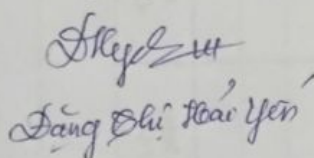 Đặng Thị Hải Yến